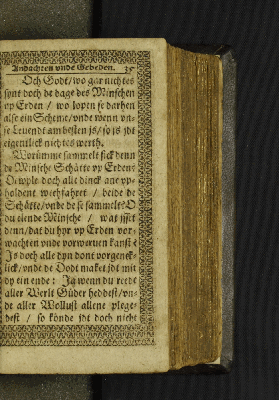 Andachten vnde Gebeden. 35
Och Godt/ wo gar nichtes
synt doch de dage des Minschen
vp Erden / wo lopen se darhen
alse ein Scheme/ vnde wenn vn-
se Leuendt am besten js/ so js jdt
eigentlick nichtes werth.
Worümme sammelt sick denn
de Minsche Schätte vp Erden?
doch alle dinck ane vp-
holdent wechfahret / beide de
Schätte/ vnde de se sammelt? O
du elende Minsche / wat
denn/ dat du hyr vp Erden vor-
wachten vnde vorweruen kanst?
Js doch alle dyn dont vorgeuck-
lick/ vnde de Dodt maket jdt mit
dy ein ende: Ja wenn du reede
aller Werlt Güder heddest/ vn-
de aller Wollust allene plege-
dest / so könde jdt doch nicht